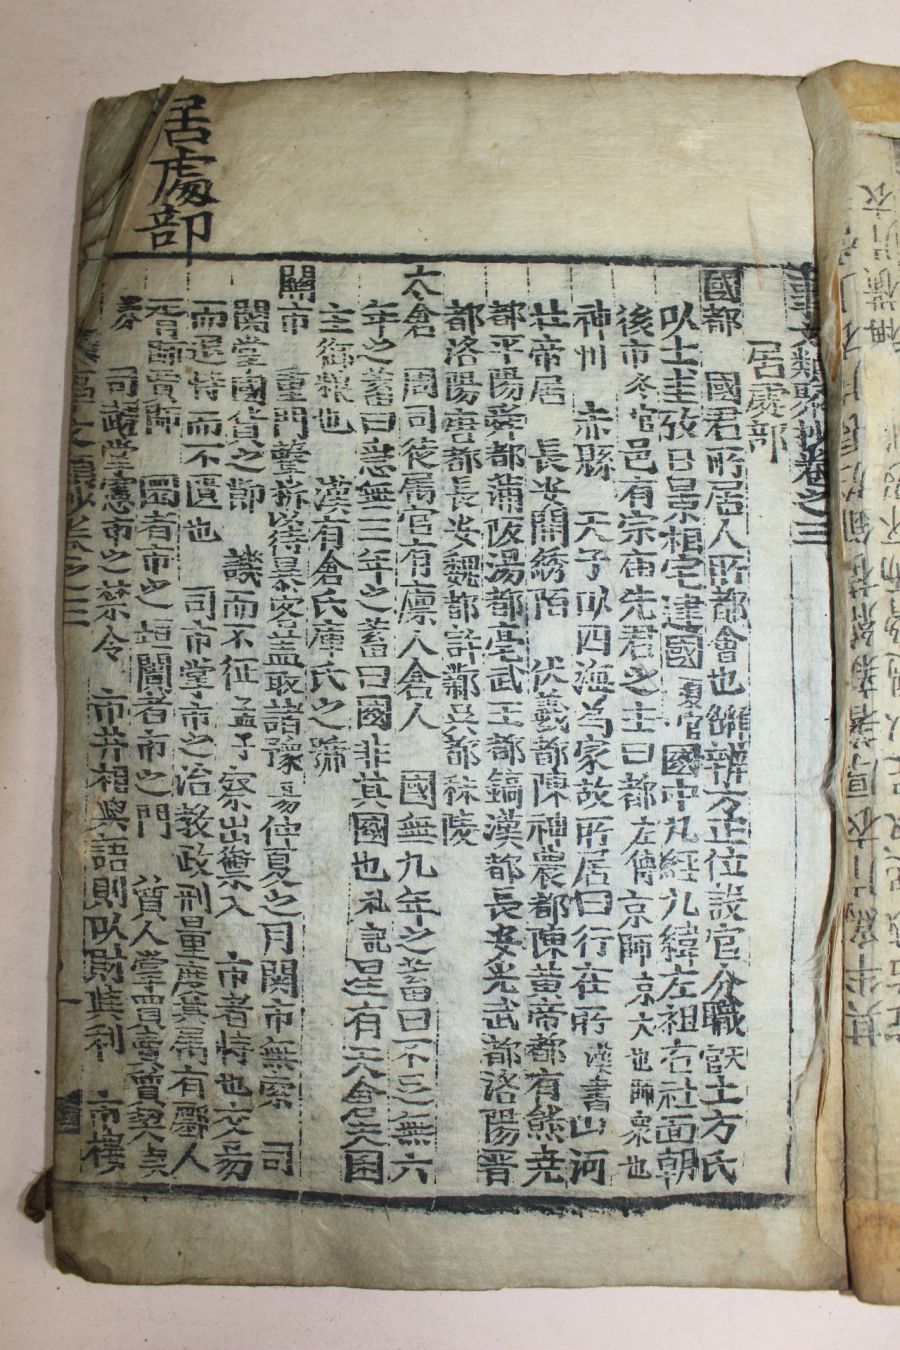 居處部
類聚抄卷之三
居處部
國都 國君所居人所都會也 惟辨方正位設官分職 以土方氏
以土圭致日景相宅建國 夏官 國中九經九緯左祖右社面朝
後市 冬官 邑有宗庙先君之主曰都 左傳 京師 京大也師衆也
神州 赤縣 天子以四海為家故所居曰行在所 漢書 山河
壮帝居 長安開綉陌 伏羲都陳神農都陳黄帝都有熊尭
都平陽舜都蒲阪湯都亳武王都鎬漢都長安光武都洛陽晋
都洛陽唐都長安魏都許鄴吳都秣陵
太倉 周司徒属官有廪人倉人 國無九年之蓄曰不足無六
年之蓄曰急無三年之蓄曰國非其國也 礼記 星有天倉天囷
主御粮也 漢有倉氏庫氏之號
關市 重門擊柝以待暴客盖取諸豫 易 仲夏之月関市無索 司
関掌國貨之節 譏而不征 孟子 察出禦入 市者恃也交易
而退恃而不匱也 司市掌市之治教政刑量度禁令有 人
胥師賈師 闤者市之垣闠者市之門 質人掌 賣
司虣掌憲市之禁令 市井相與語則以財其利 市樓